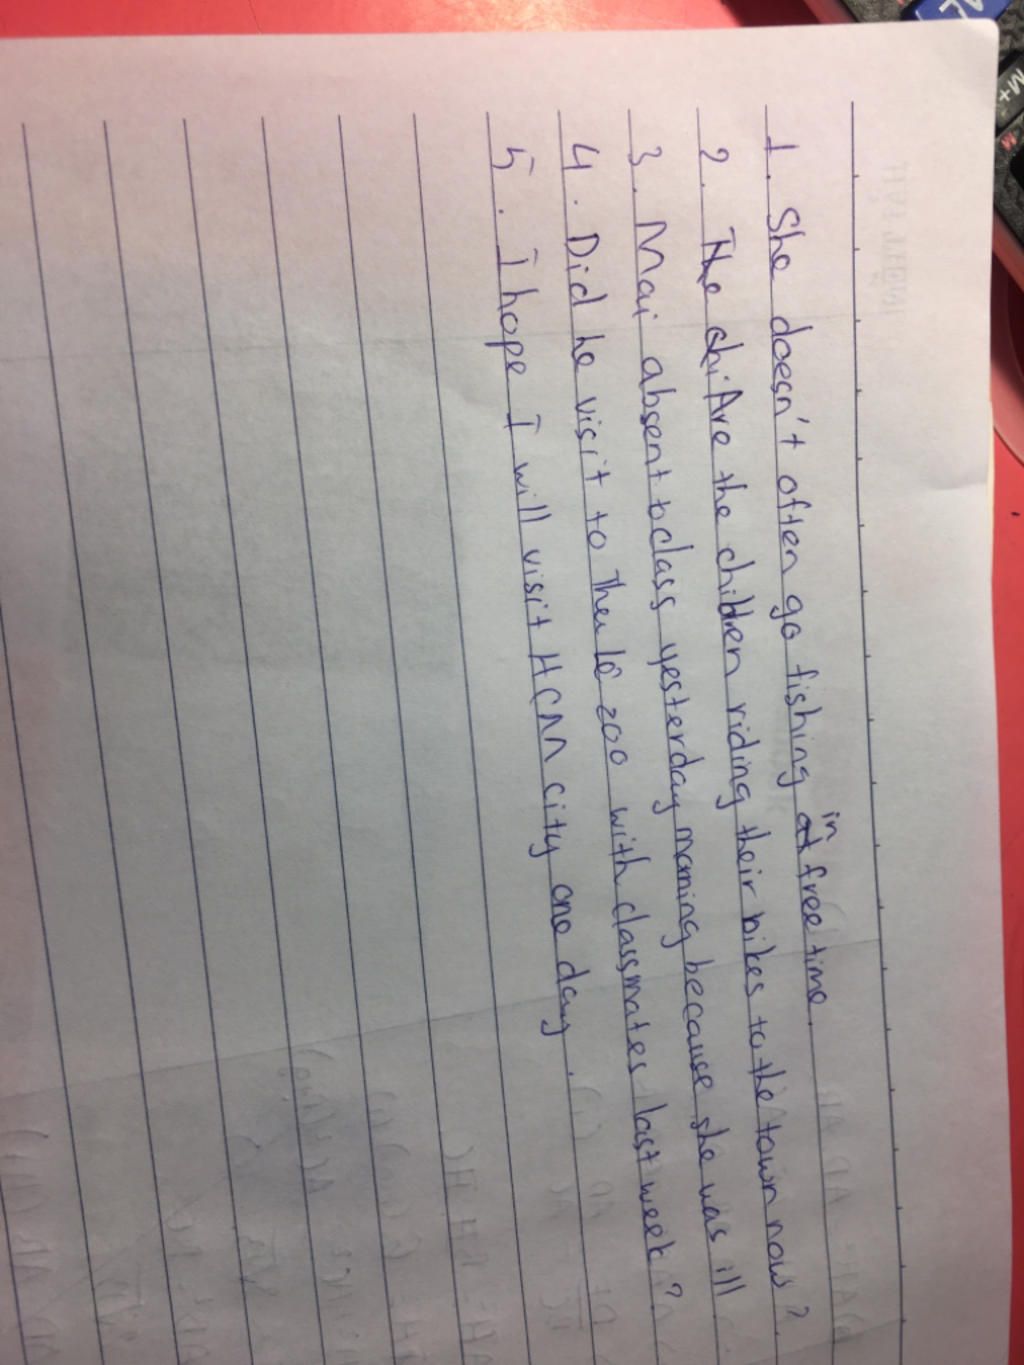 1. She doesn't often go fishing in free time.
2. Are the children riding their bikes to the town now?
3. Mai absent to class yesterday morning because she was ill
4. Did he visit to Thu Lê zoo with classmates last week?
5. I hope I will visit HCM city one day.
M+